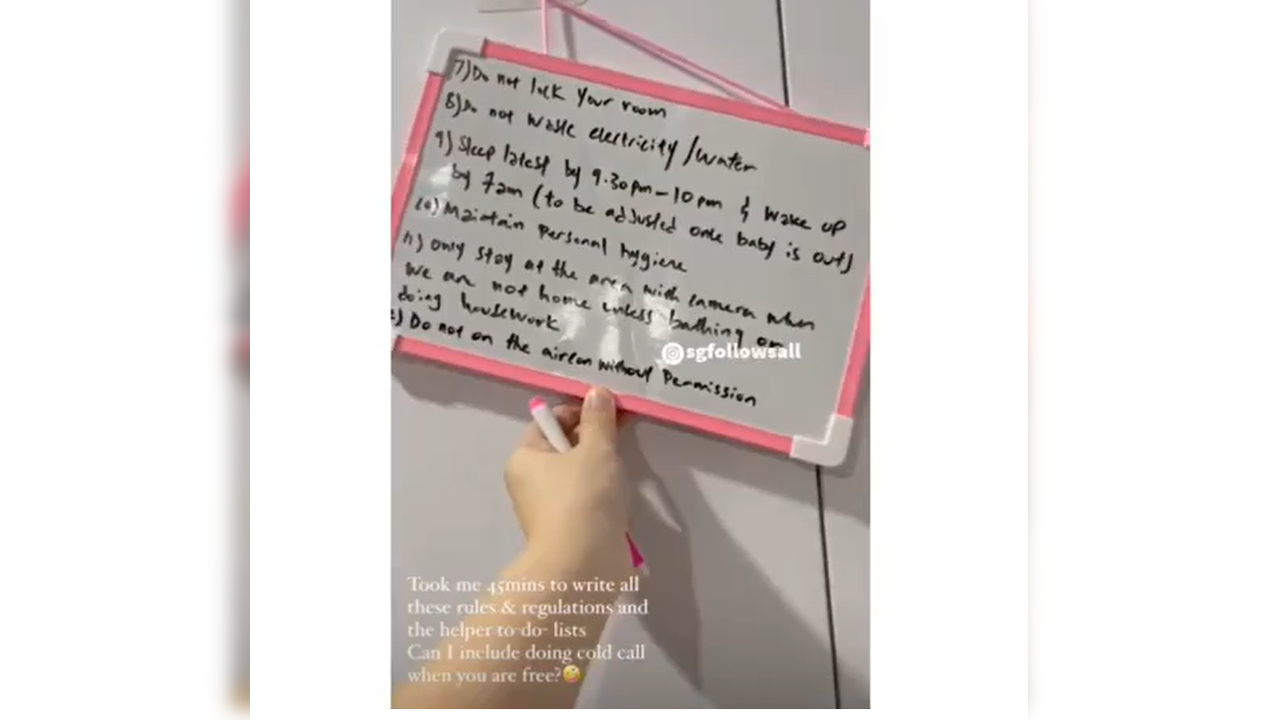 7) Do not lock your room
8) Do not waste electricity/water
9) Sleep latest by 9.30pm - 10pm & wake up
by 7am (to be adjusted once baby is out)
10) Maintain Personal hygiene
11) only stay at the area with camera when
we are not home unless bathing or
doing housework
) Do not on the aircon without Permission
@sgfollowsall
Took me 45mins to write all
these rules & regulations and
the helper to-do- lists
Can I include doing cold call
when you are free?🤪